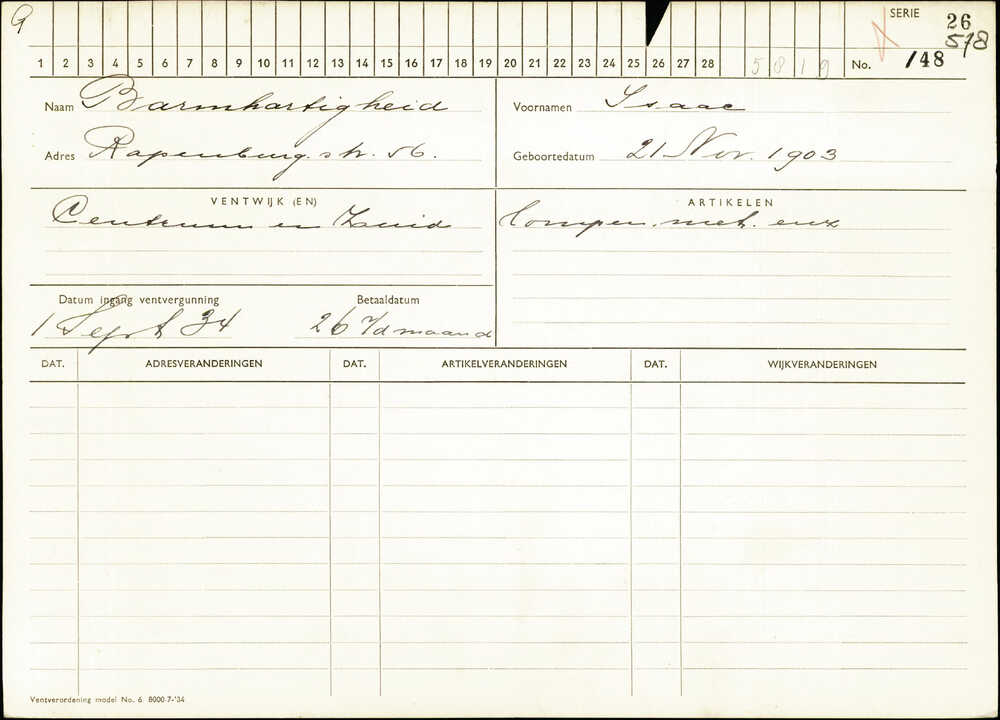 G
SERIE 26
578
1 2 3 4 5 6 7 8 9 10 11 12 13 14 15 16 17 18 19 20 21 22 23 24 25 26 27 28 5 8 1 9 No. 148
Naam Barmhartigheid Voornamen Isaac
Adres Rapenburg.str. 56. Geboortedatum 21 Nov. 1903
VENTWIJK (EN) ARTIKELEN
Centrum en Zuid Lompen. met. enz
Datum ingang ventvergunning Betaaldatum
1 Sept 34 26 v/d maand
DAT. ADRESVERANDERINGEN DAT. ARTIKELVERANDERINGEN DAT. WIJKVERANDERINGEN
Ventverordening model No. 6 8000-7-'34